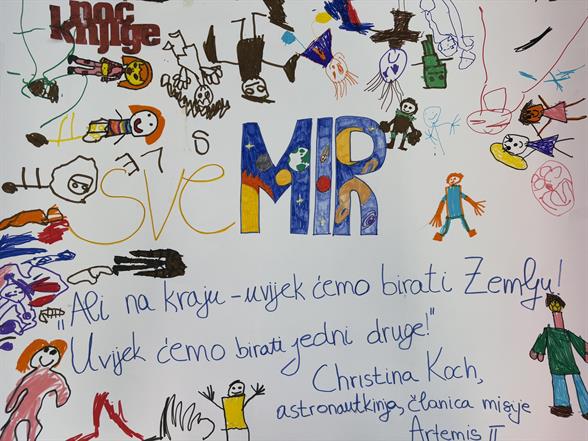 noć
knjige
sveMIR
„Ali na kraju – uvijek ćemo birati Zemlju!
Uvijek ćemo birati jedni druge!"
Christina Koch,
astronautkinja, članica misije
Artemis II